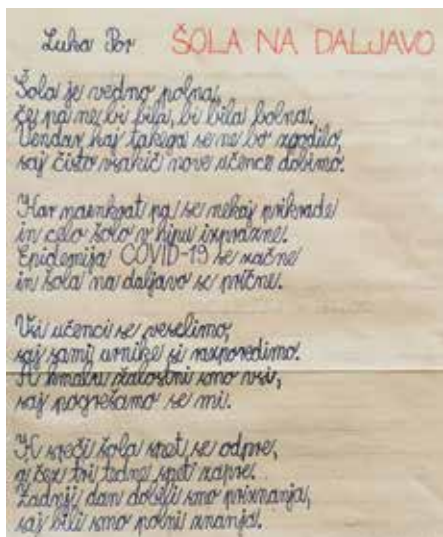 Luka Por ŠOLA NA DALJAVO
Šola je vedno polna,
če pa ne bi bila, bi bila bolna.
Vendar kaj takega se ne bo zgodilo,
saj čisto vsakič nove učence dobimo.
Kar naenkrat pa se nekaj prikrade
in celo šolo v hipu izprazne.
Epidemija COVID-19 se začne
in šola na daljavo se prične.
Vsi učenci se veselimo,
saj sami urnike si razporedimo.
A kmalu žalostni smo vsi,
saj pogrešamo se mi.
K sreči šola spet se odpre,
a čez tri tedne spet zapre.
Zadnji dan dobili smo priznanja,
saj bili smo polni znanja.